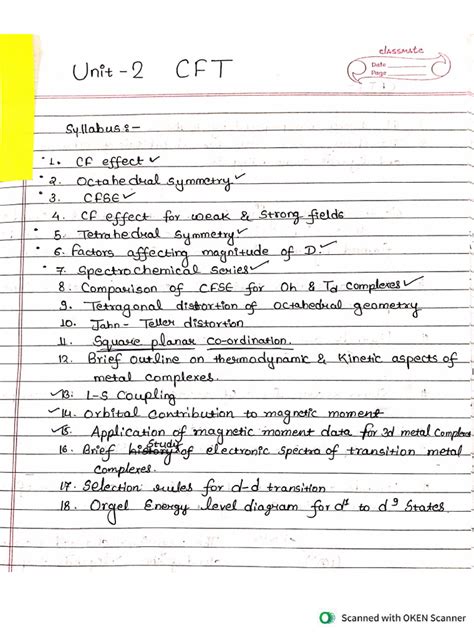 classmate
Date
Page
Unit - 2 CFT
Syllabus :-
1. CF effect ✓
2. Octahedral symmetry ✓
3. CFSE ✓
4. CF effect for weak & strong fields
5. Tetrahedral symmetry ✓
6. Factors affecting magnitude of D.
7. Spectrochemical series ✓
8. Comparison of CFSE for Oh & Td complexes ✓
9. Tetragonal distortion of octahedral geometry
10. Jahn - Teller distortion
11. Square planar co-ordination.
12. Brief outline on thermodynamic & Kinetic aspects of
metal complexes.
✓13. L-S Coupling
✓14. Orbital Contribution to magnetic moment
✓15. Application of magnetic moment data for 3d metal Complexes
16. Brief study of electronic spectra of transition metal
complexes.
17. Selection rules for d-d transition
18. Orgel Energy level diagram for d¹ to d⁹ States
Scanned with OKEN Scanner